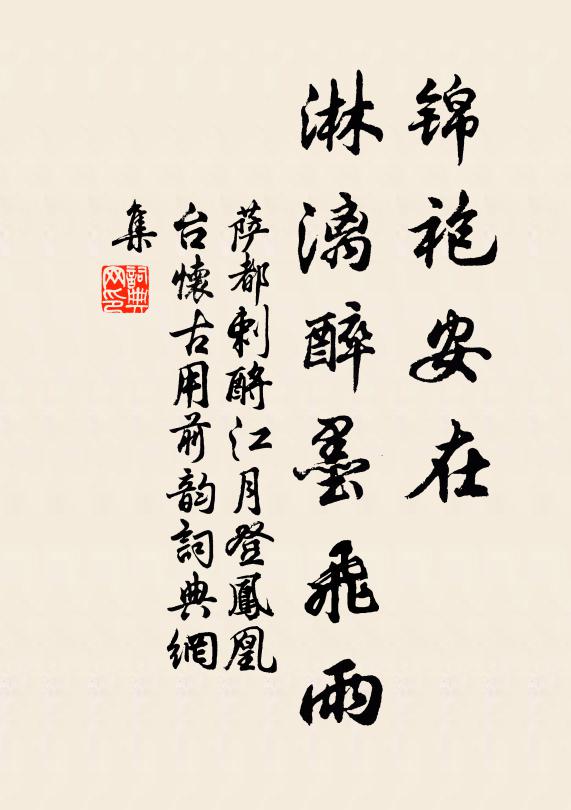 锦袍安在
淋漓醉墨飛雨
萨都剌酹江月登鳳凰
台懷古用前韵詞典網
集
詞典
网印